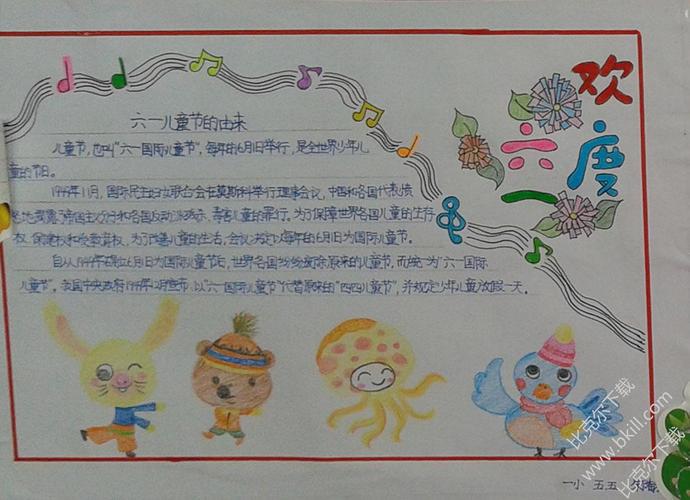 欢度
六一
六一儿童节的由来
儿童节，也叫"六一国际儿童节"，每年的6月1日举行，是全世界少年儿
童的节日。
1949年11月，国际民主妇女联合会在莫斯科举行理事会议，中国和各国代表愤
怒地揭露了帝国主义分子和各国反动派残杀、毒害儿童的罪行。为了保障世界各国儿童的生存
权、保健权和受教育权，为了改善儿童的生活，会议决定以每年的6月1日为国际儿童节。
自从1949年确立6月1日为国际儿童节后，世界各国纷纷废除原来的儿童节，而统一为"六一国际
儿童节"。我国中央政府1949年12月宣布，以"六一国际儿童节"代替原来的"四四儿童节"，并规定少年儿童放假一天。
一小 五五
比克尔下载
www.bkill.com
比克尔下载